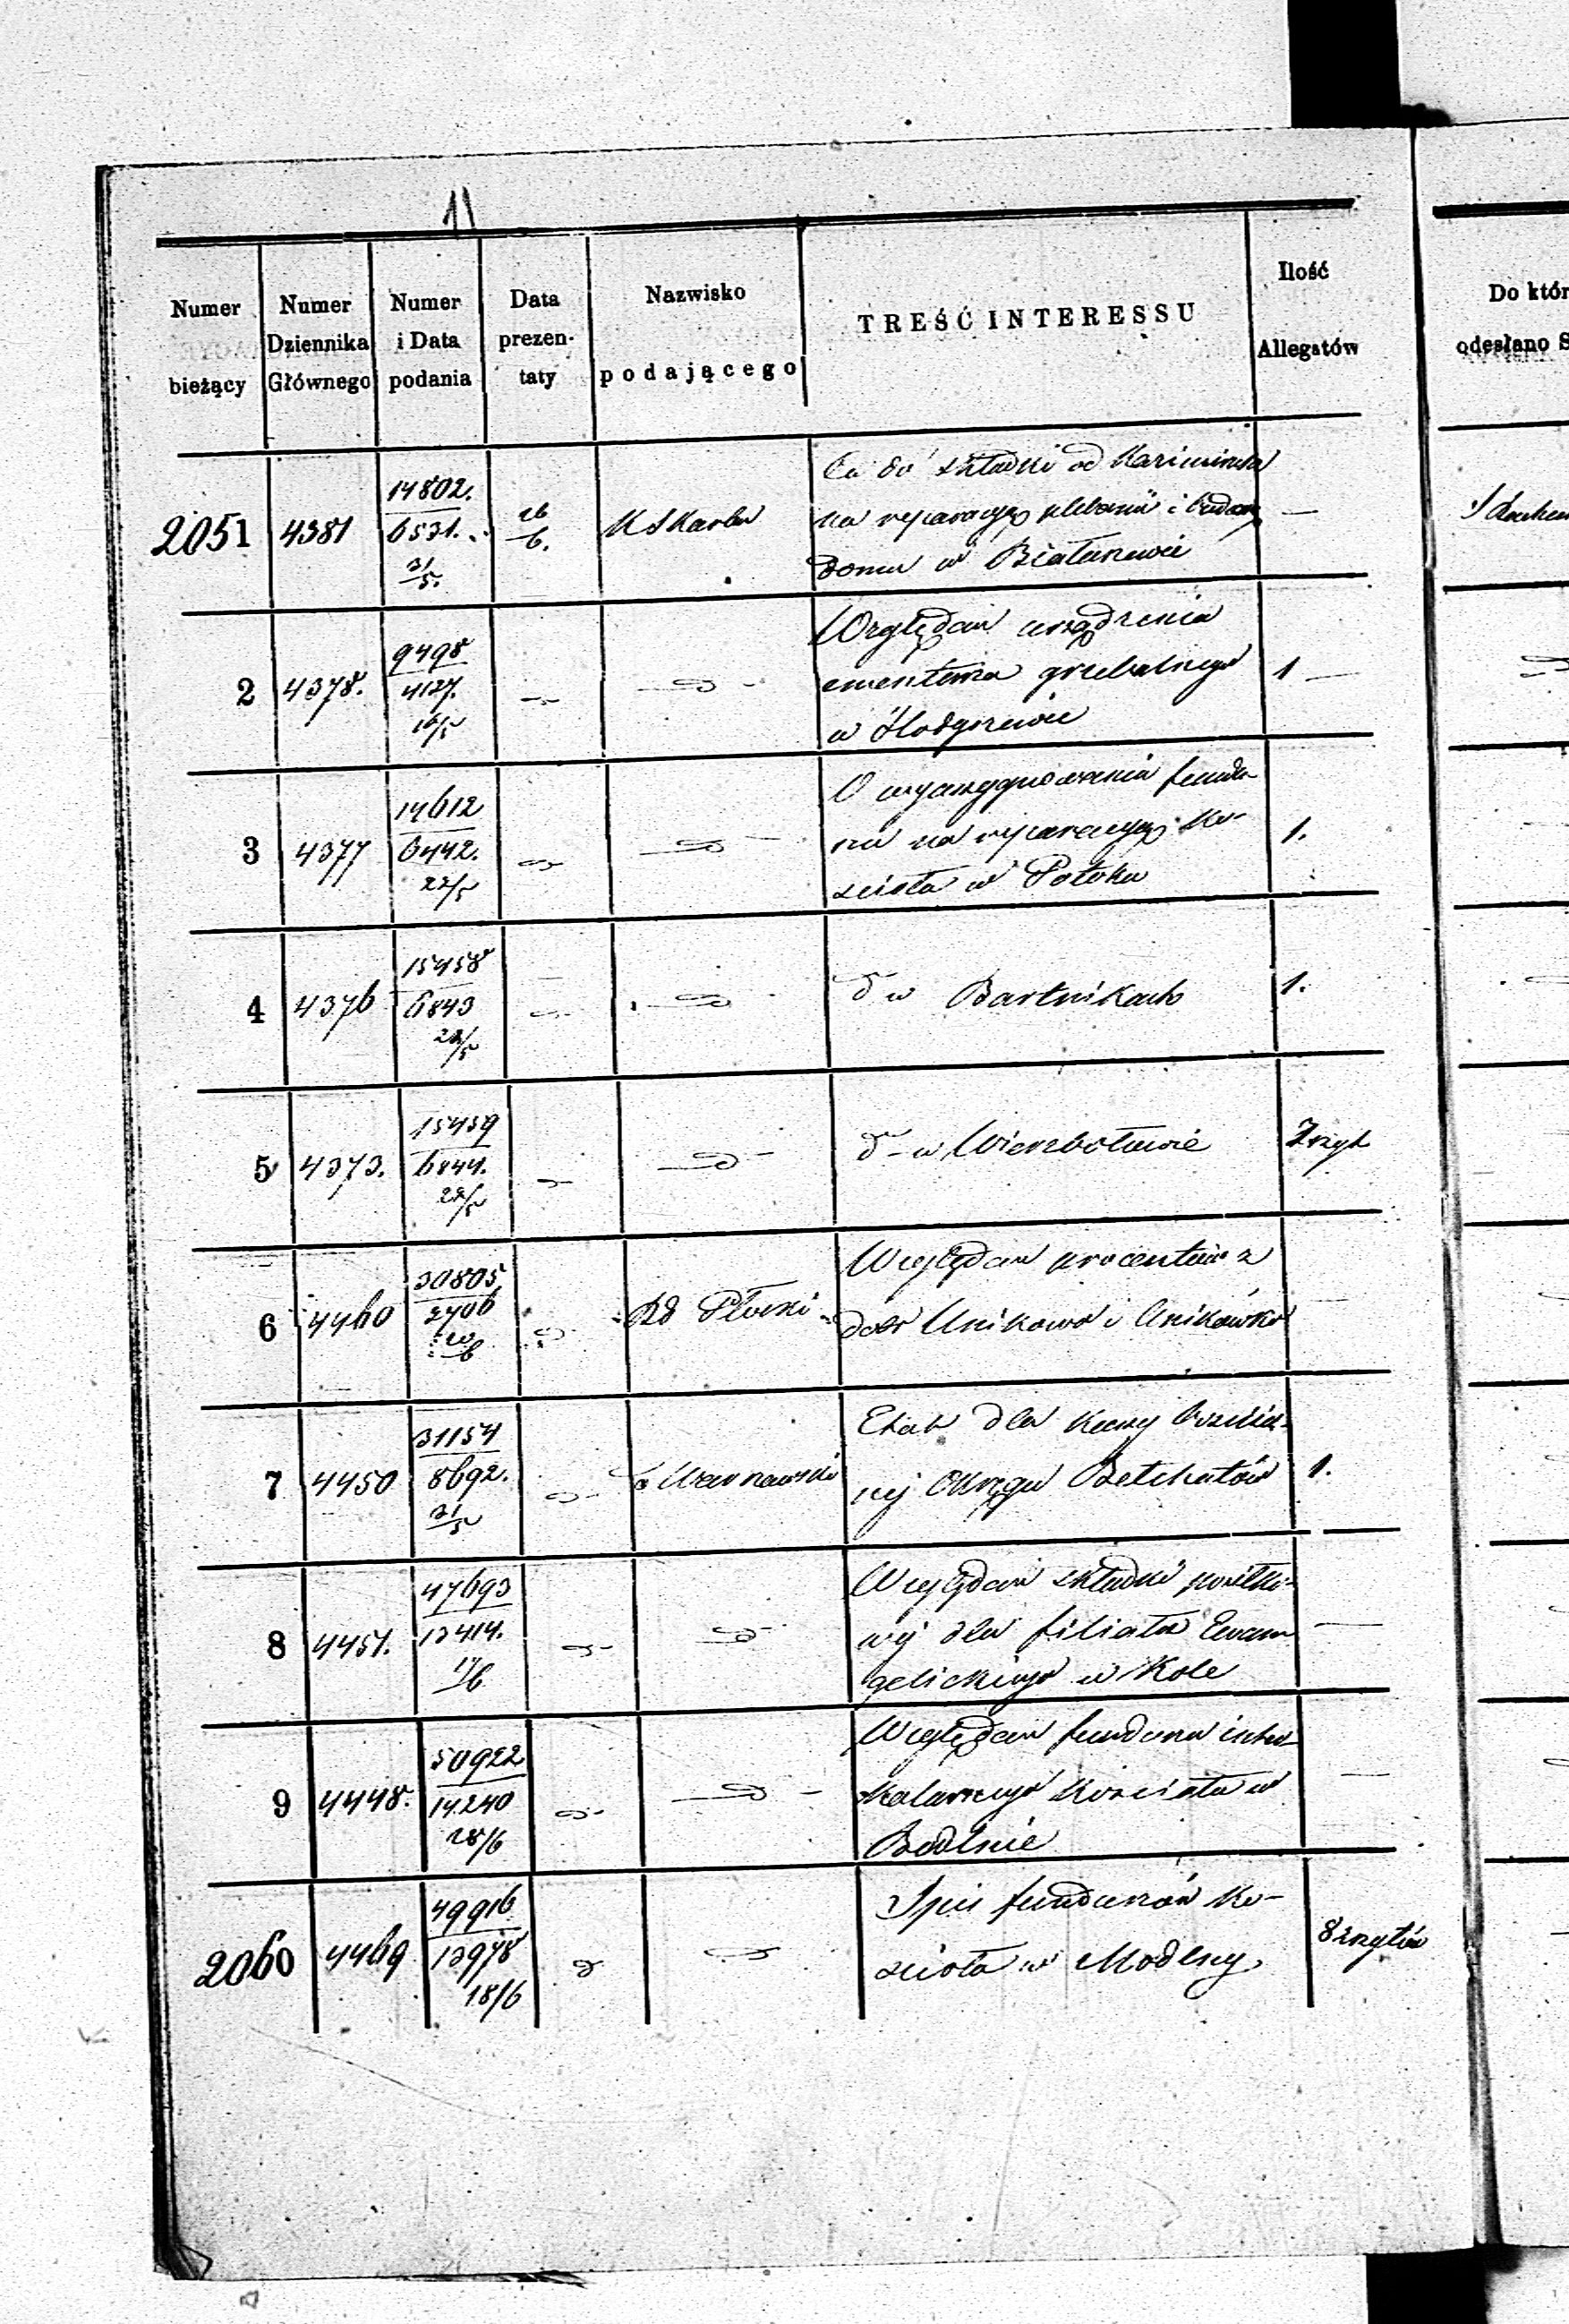 11
Numer bieżący
Numer Dziennika Głównego
Numer i Data podania
Data prezentaty
Nazwisko podającego
TREŚĆ INTERESSU
Ilość Allegatów
Do któr
odesłano S
2051 4381 14802. 6531. 31/5. 26/6. K S Karbu
Co do składki od
na reparacyę plebanii i
domu w —
2 4378. 9498 4127. 16/5
Względem urządzenia
cmentarza grzebalnego 1 —
w
3 4377 14612 6442. 22/5
O wyasygnowania fundu
szu na reparacyę Ko- 1.
scioła w Potoku
4 4376 15458 6843 22/5
d° w Bartnikach 1.
5 4373. 15459 6844. 22/5
d° w Wierzbołowie
6 4460 30805 2706 20/6 Rd Płocki
Względem procentów z
dóbr Unikowo i Unikówko —
7 4450 31154 8692. 31/5 " Warszawski
Etat dla Kassy
nej Okręgu Bełchatów 1.
8 4451. 47693 13414. 17/6
Względem składki posiłko-
wej dla filiału Ewan
gelickiego w Kole —
9 4448. 50922 14240 28/6
Względem funduszu inter-
kalarnego Kościoła w —
2060 4469 49916 13978 18/6
Spis funduszów Ko-
scioła w Modlny. 8 zszytów